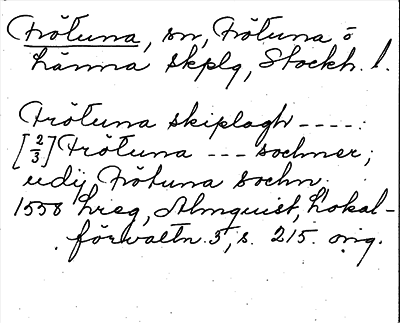 Frötuna, sn, Frötuna o
Länna skplg, Stockh. l.
Frötuna skiplagh ----:
[2/3] Frötuna --- sochner;
udij Frötuna sochn.
1558 hreg, Almquist, Lokal-
förvaltn. 5, s. 215. orig.